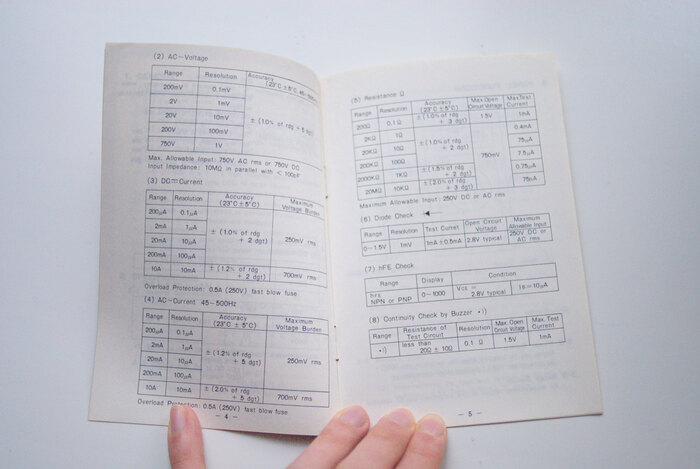 (2) AC~Voltage
Range Resolution Accuracy (23°C ±5°C, 45~500Hz)
200mV 0.1mV ± (1.0% of rdg + 5 dgt)
2V 1mV
20V 10mV
200V 100mV
750V 1V
Max. Allowable Input: 750V AC rms or 750V DC
Input Impedance: 10MΩ in parallel with < 100pF
(3) DC⎓Current
Range Resolution Accuracy (23°C±5°C) Maximum Voltage Burden
200µA 0.1µA ± (1.0% of rdg + 2 dgt) 250mV rms
2mA 1µA
20mA 10µA
200mA 100µA
10A 10mA ± (1.2% of rdg + 2 dgt) 700mV rms
Overload Protection: 0.5A (250V) fast blow fuse
(4) AC~Current 45~500Hz
Range Resolution Accuracy (23°C ± 5°C) Maximum Voltage Burden
200µA 0.1µA ± (1.2% of rdg + 5 dgt) 250mV rms
2mA 1µA
20mA 10µA
200mA 100µA
10A 10mA ± (2.0% of rdg + 5 dgt) 700mV rms
Overload Protection: 0.5A (250V) fast blow fuse
— 4 —
(5) Resistance Ω
Range Resolution Accuracy (23°C ± 5°C) Max.Open Circuit Voltage Max.Test Current
200Ω 0.1Ω ± (1.0% of rdg + 3 dgt) 1.5V 1mA
2KΩ 1Ω ± (1.0% of rdg + 2 dgt) 750mV 0.4mA
20KΩ 10Ω 75µA
200KΩ 100Ω 7.5µA
2000KΩ 1KΩ ± (1.5% of rdg + 2 dgt) 0.75µA
20MΩ 10KΩ ± (2.0% of rdg + 3 dgt) 75nA
Maximum Allowable Input: 250V DC or AC rms
(6) Diode Check
Range Resolution Test Curret Open Circuit Voltage Maximum Allowable Input
0~1.5V 1mV 1mA ±0.5mA 2.8V typical 250V DC or AC rms
(7) hFE Check
Range Display Condition
hFE NPN or PNP 0~1000 VCE = 2.8V typical IB=10µA
(8) Continuity Check by Buzzer •)
Range Resistance of Test Circuit Resolution Max. Open Circuit Voltage Max. Test Current
•) less than 20Ω ± 10Ω 0.1 Ω 1.5V 1mA
— 5 —